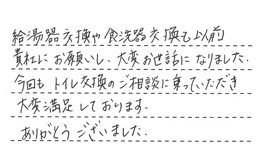 給湯器交換や食洗器交換も以前
貴社にお願いし、大変お世話になりました。
今回もトイレ交換のご相談に乗っていただき
大変満足しております。
ありがとうございました。